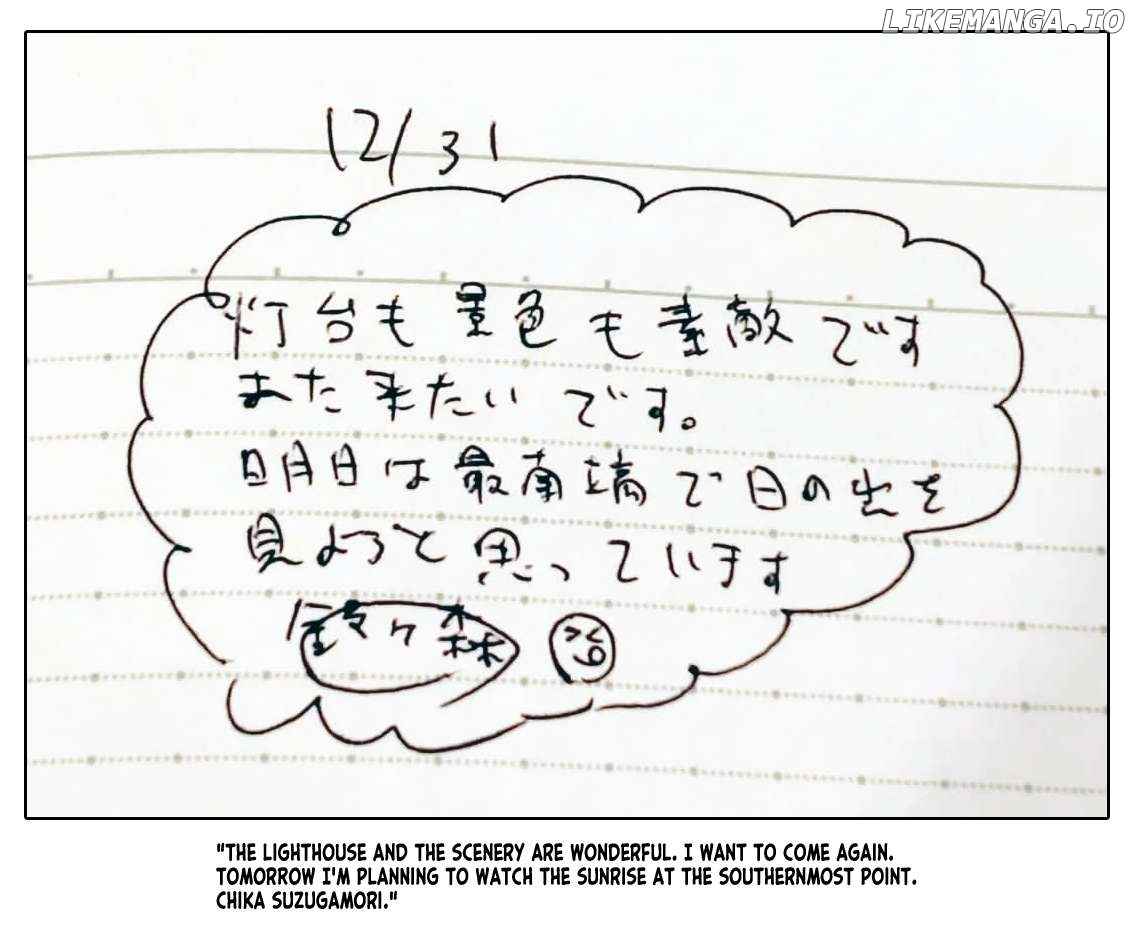 LIKEMANGA.IO
12/31
灯台も景色も素敵です
また来たいです。
明日は最南端で日の出を
見ようと思っています
鈴々森
"THE LIGHTHOUSE AND THE SCENERY ARE WONDERFUL. I WANT TO COME AGAIN.
TOMORROW I'M PLANNING TO WATCH THE SUNRISE AT THE SOUTHERNMOST POINT.
CHIKA SUZUGAMORI."